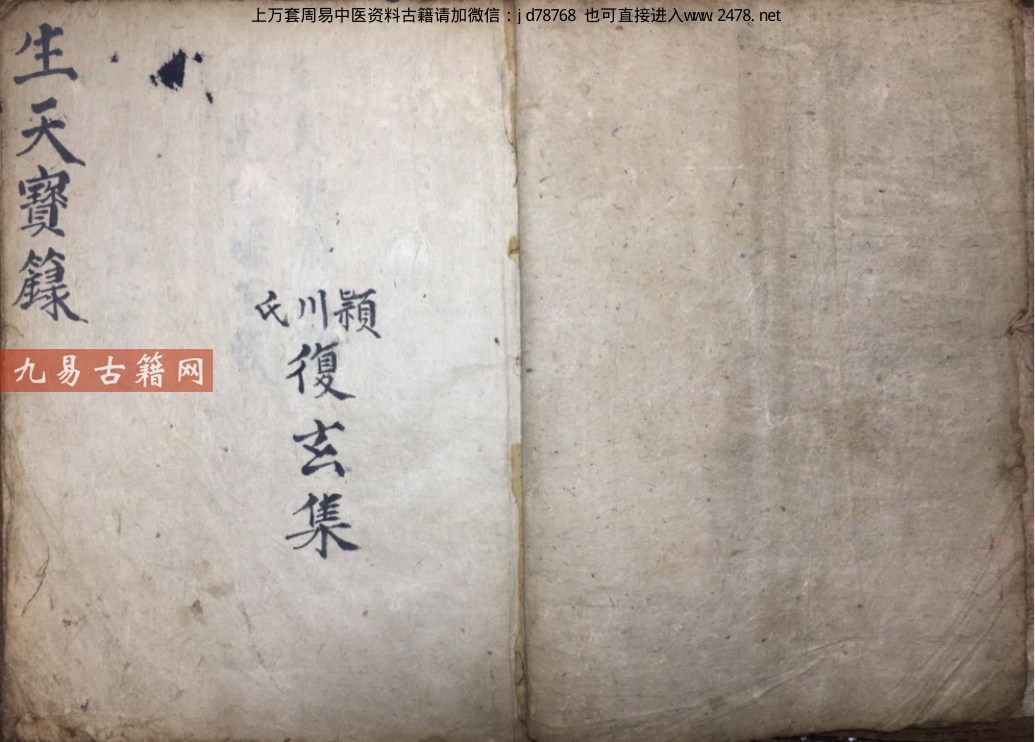 上万套周易中医资料古籍请加微信：jd78768 也可直接进入www.2478.net
生天寶籙
穎川氏
復玄集
九易古籍网